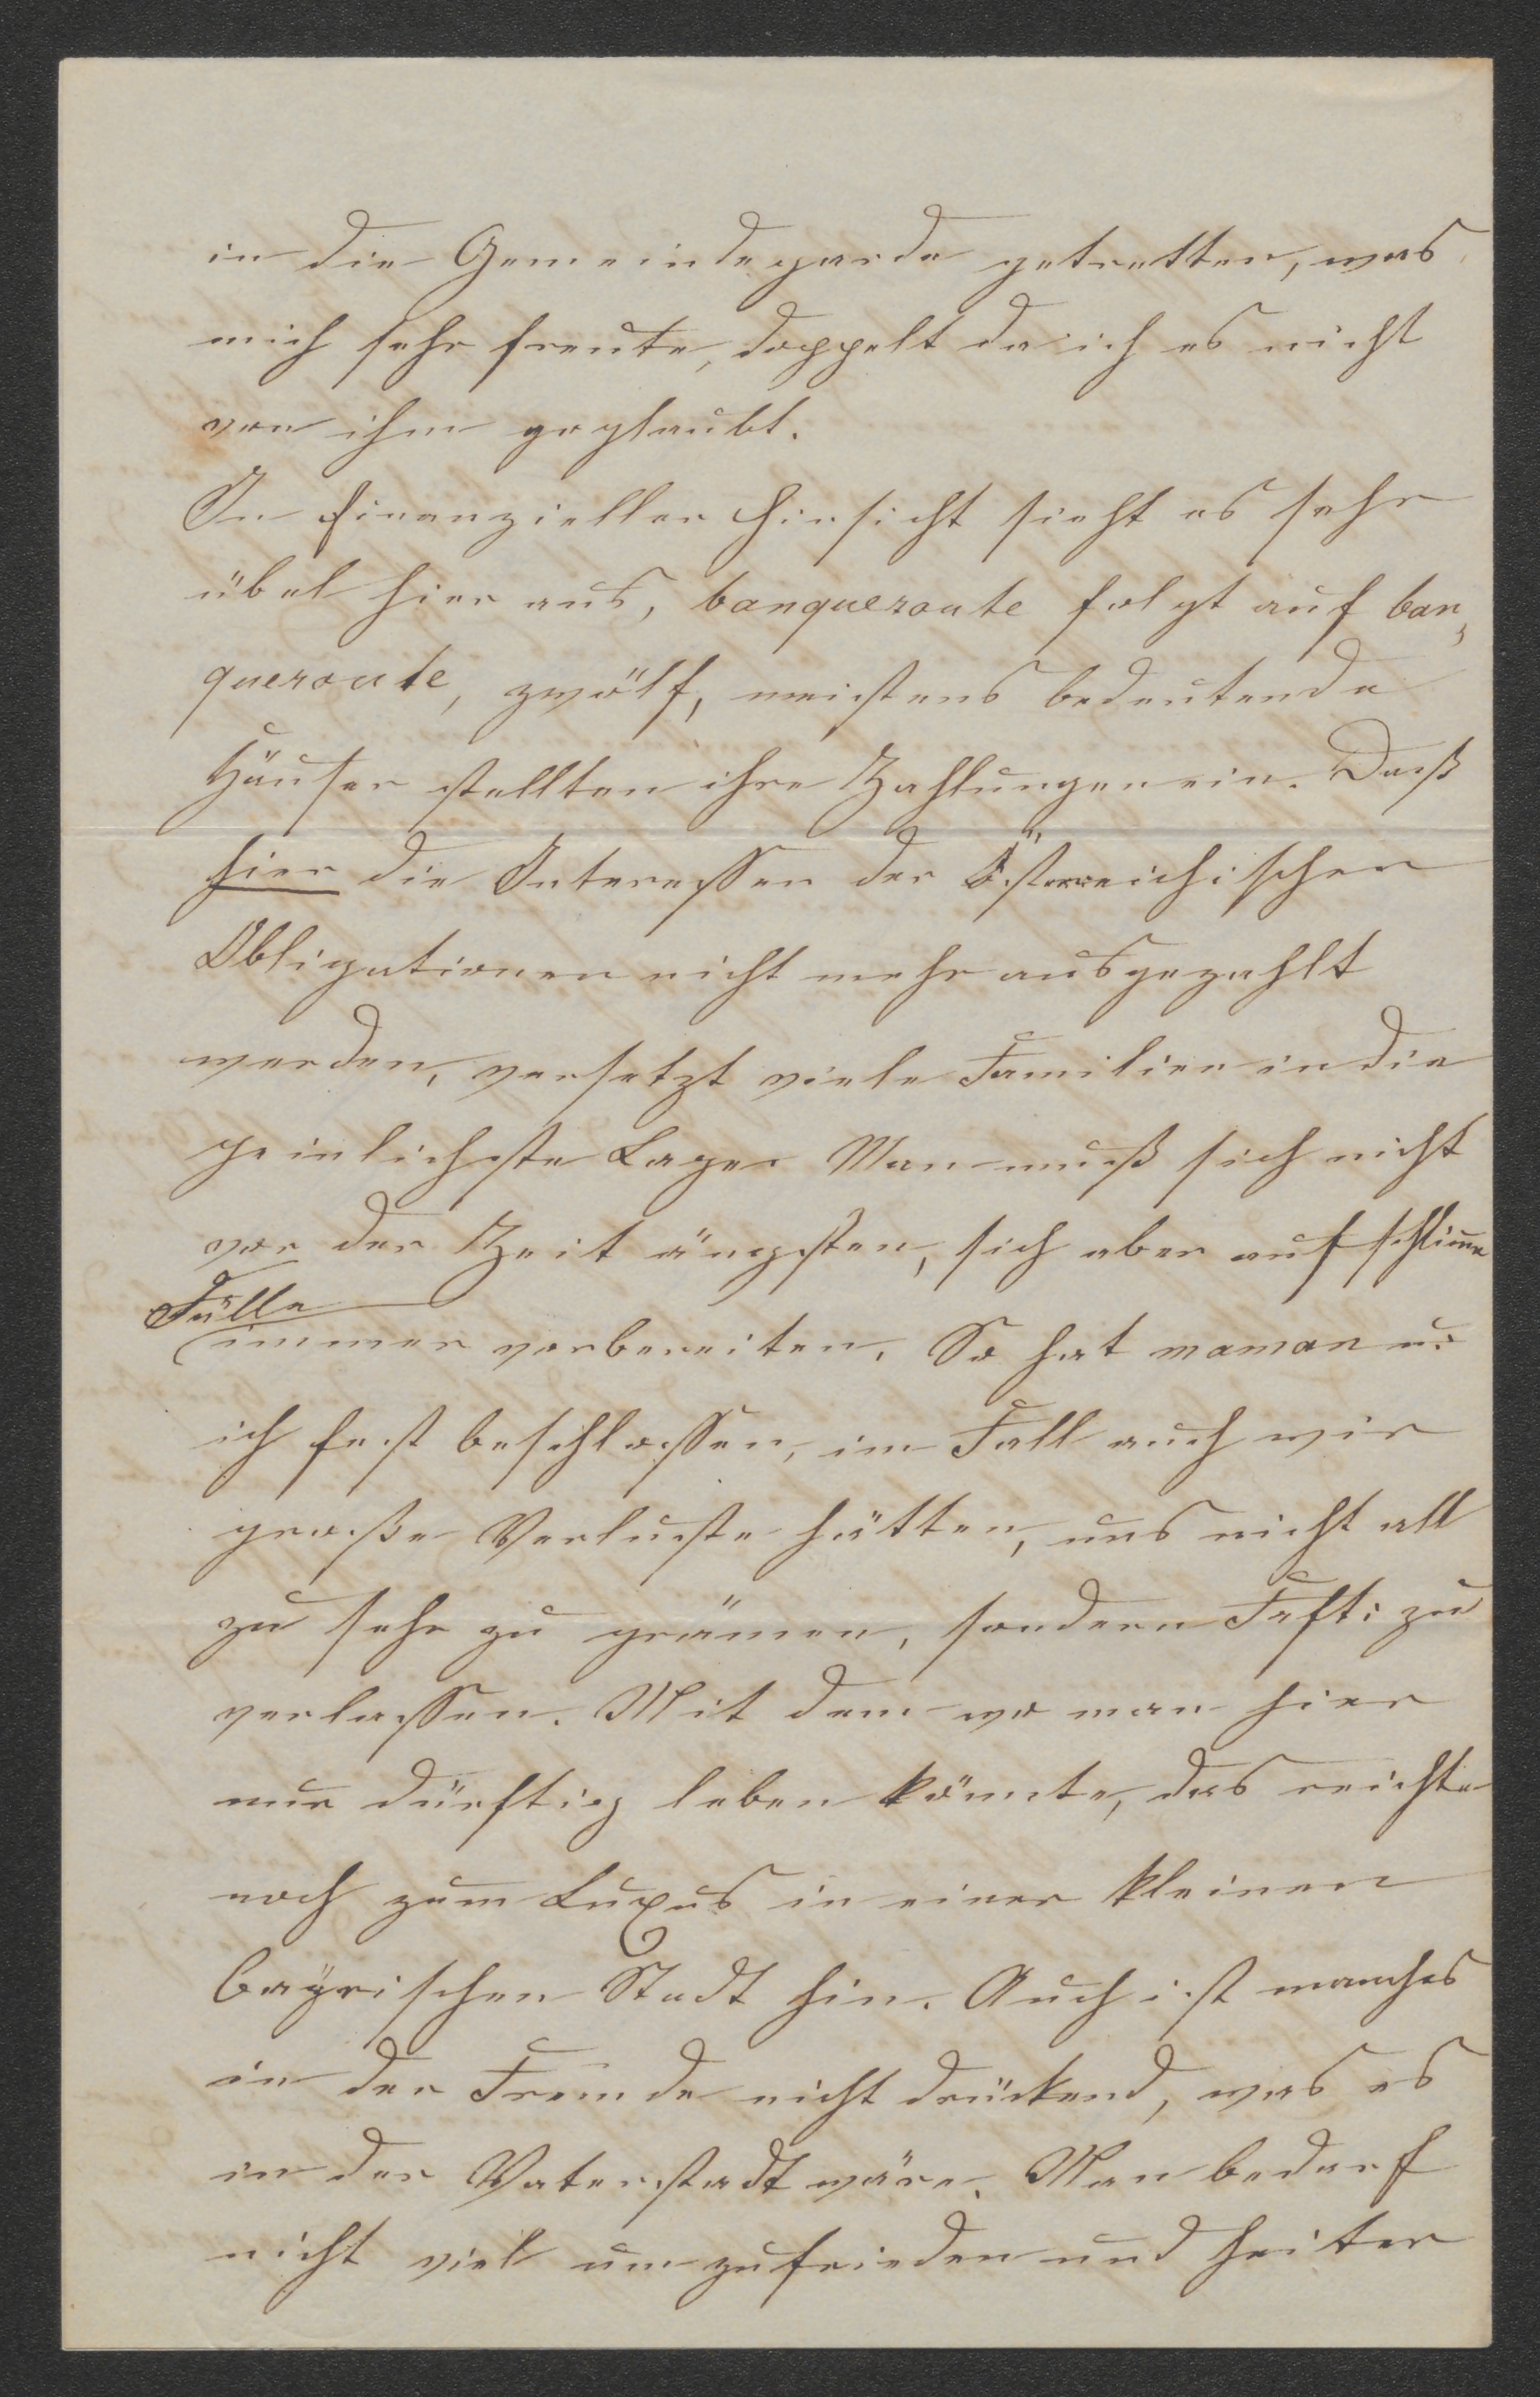 in die Gemeindegarde getretten, was
mich sehr freute, doppelt da ich es nicht
von ihm geglaubt.
In finanzieller Hinsicht sieht es sehr
übel hier aus, banqueroute folgt auf ban,
queroute, zwölf, meistens bedeutende
Häuser stellten ihre Zahlungen ein. Daß
hier die Interessen der Österreichischen
Obligationen nicht mehr ausgezahlt
werden, versetzt viele Familien in die
peinlichste Lage. Man muß sich nicht
vor der Zeit ängsten, sich aber auf schlimme
Fälle
immer vorbereiten. So hat maman u.
ich fest beschlossen, im Fall auch wir
große Verluste hätten, uns nicht all
zu sehr zu grämen, sondern zu
verlassen. Mit dem wo man hier
nur dürftig leben könnte, das reichte
noch zum Luxus in einer kleinen
bayrischen Stadt hin. Auch ist manches
in der Fremde nicht drückend, was es
in der Vaterstadt wäre. Man bedarf
nicht viel um zufrieden und heiter